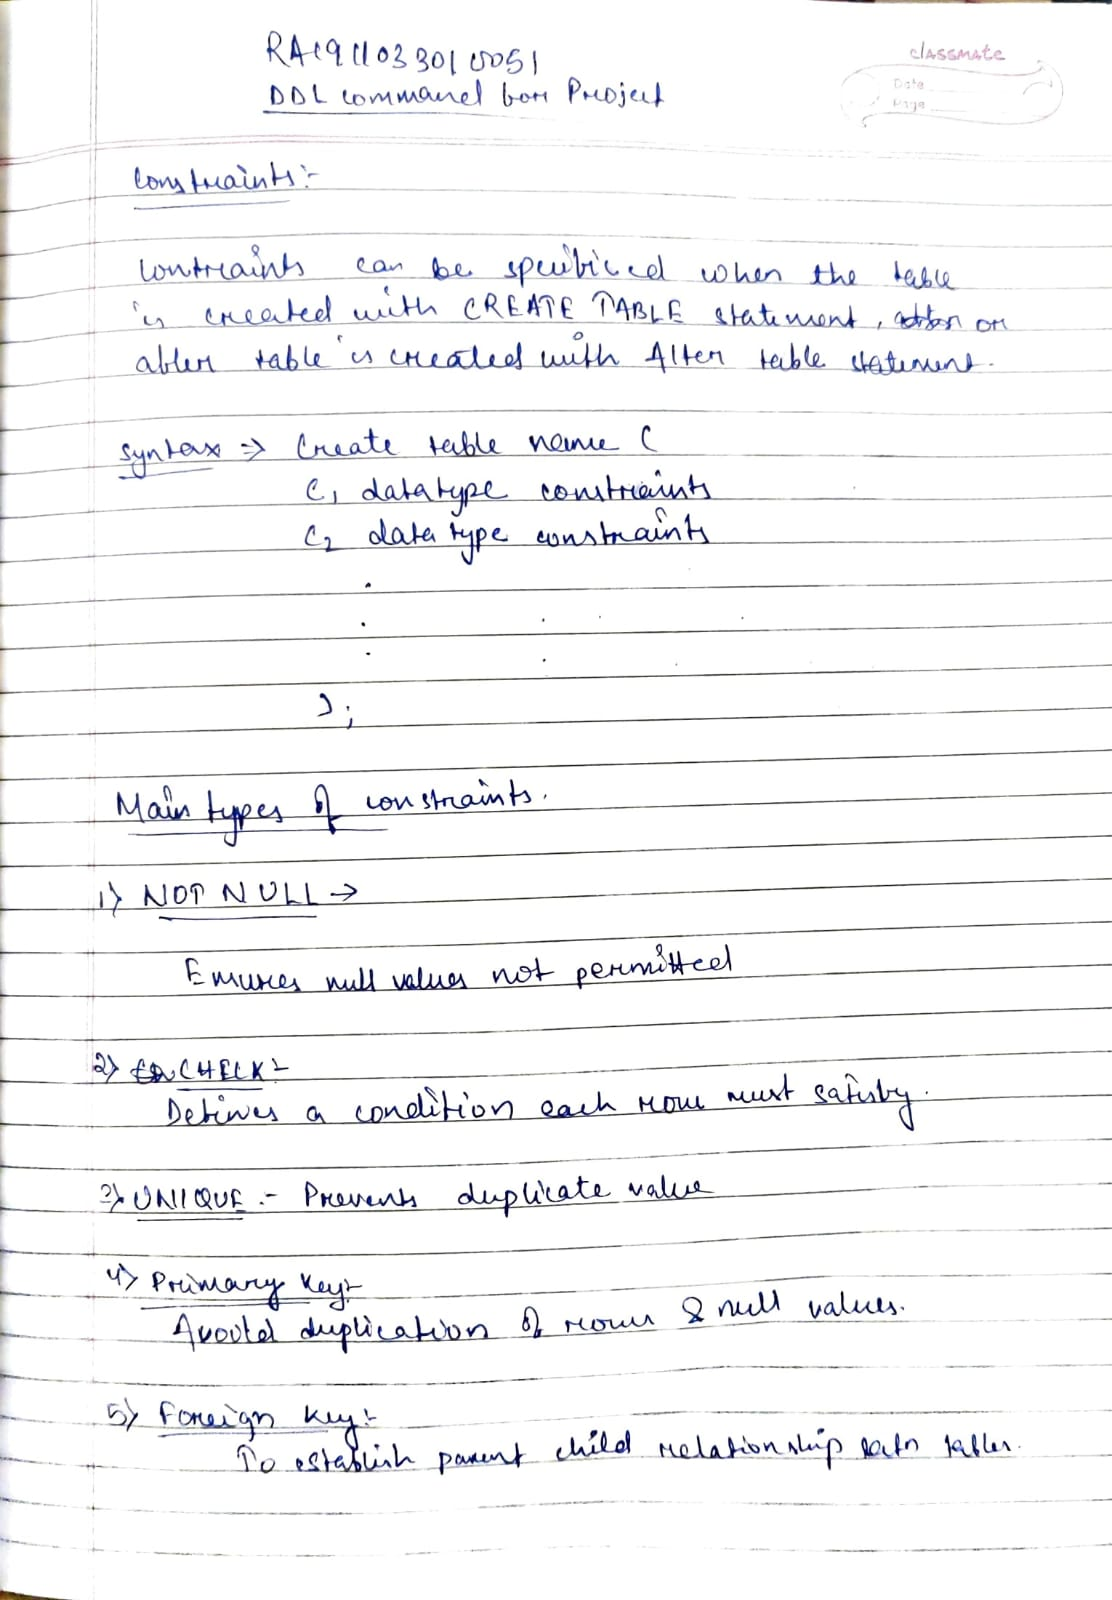 RA1911033010051
DDL command for Project
classmate
Date
Page
Constraints:-
Contraints can be specificed when the table
is created with CREATE TABLE statement, or
after table is created with Alter table statement.
Syntax => Create table name (
C1 datatype constraints
C2 data type constraints
.
.
.
);
Main types of constraints.
1) NOT NULL →
Ensures null values not permitted
2) CHECK:-
Defines a condition each row must satisfy.
3) UNIQUE :- Prevents duplicate value
4) Primary Key:-
duplication of rows & null values.
5) Foreign Key:-
To establish parent child relationship betn tables.